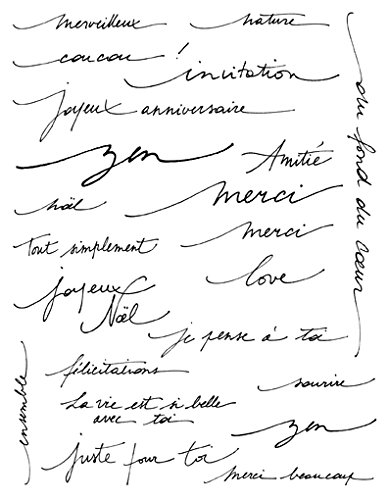 merveilleux
nature
coucou !
invitation
joyeux anniversaire
zen
Amitié
noël
merci
merci
Tout simplement
love
joyeux
Noël
je pense à toi
félicitations
sourire
La vie est si belle
avec toi
zen
juste pour toi
merci beaucoup
ensemble
du fond du cœur